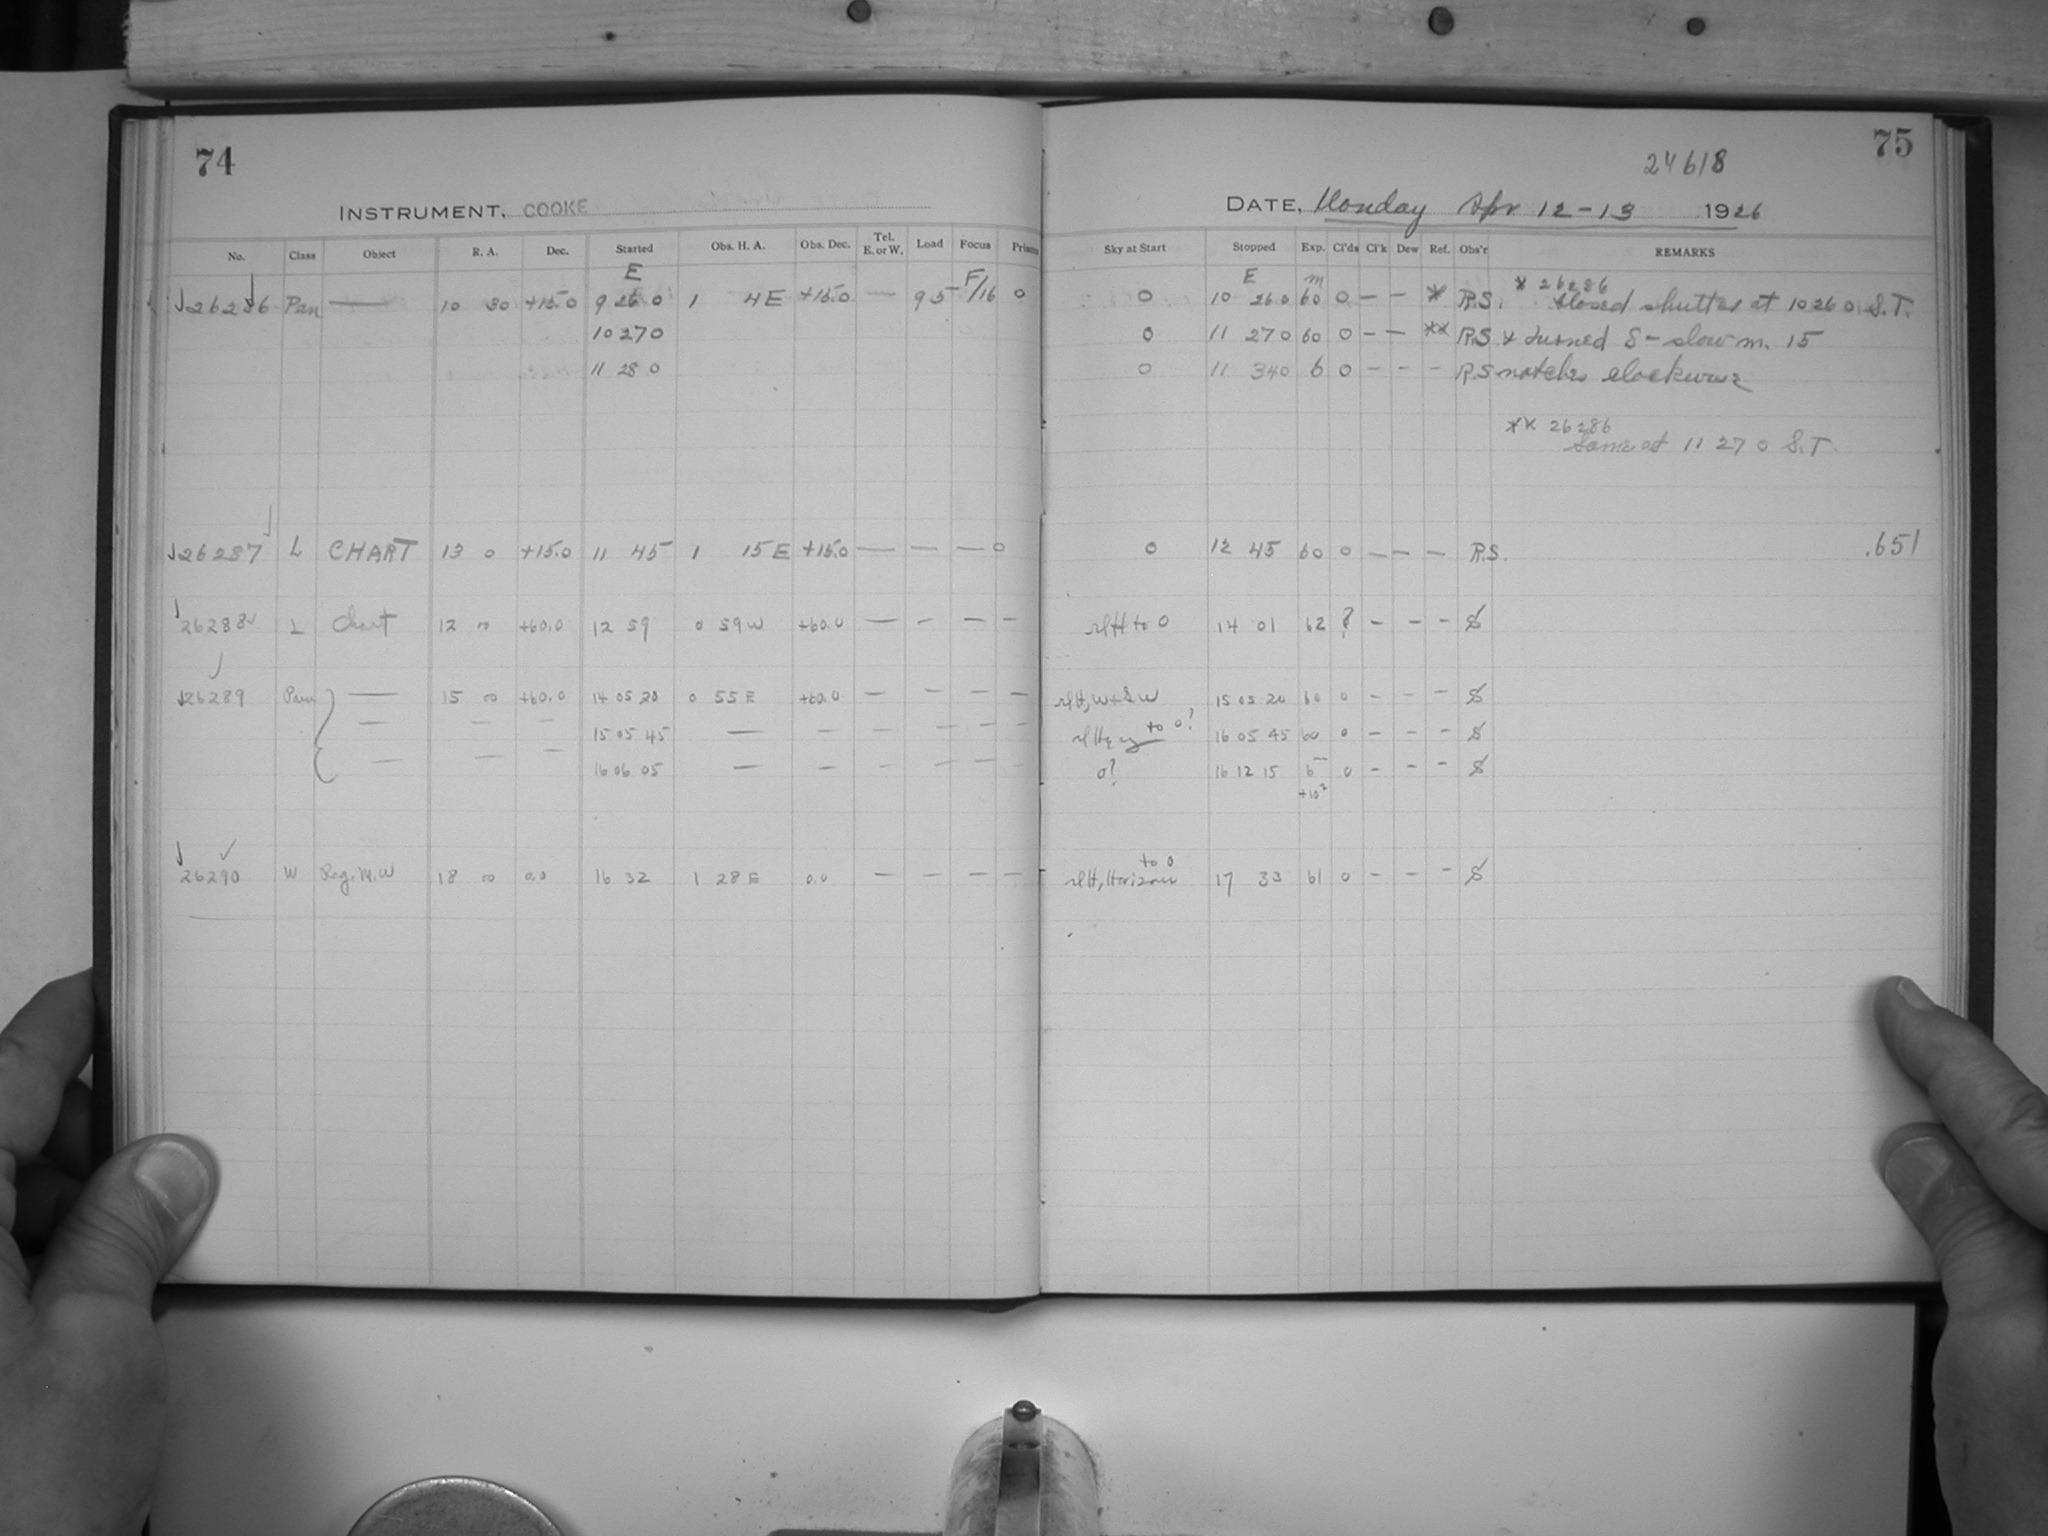 74
INSTRUMENT, COOKE
No. Class Object R. A. Dec. Started Obs. H. A. Obs. Dec. Tel. E. or W. Load Focus Prisms
E
26286 Pan — 10 30 +15.0 9 26 0 1 4 E +15.0 — 95 F/16 0
10 27 0
11 28 0
26287 L CHART 13 0 +15.0 11 45 1 15 E +15.0 — — — 0
26288 L Chart 12 00 +60.0 12 59 0 59 W +60.0 — — — —
26289 Pan — 15 00 +60.0 14 05 20 0 55 E +60.0 — — — —
— — — 15 05 45 — — — — — —
— — — 16 06 05 — — — — — —
26290 W Reg. M.W 18 00 0.0 16 32 1 28 E 0.0 — — — —
75
24618
DATE, Monday Apr 12-13 1926
Sky at Start Stopped Exp. Cl'ds Cl'k Dew Ref. Obs'r REMARKS
E m * 26286
0 10 26 0 60 0 — — * R.S. Closed shutter at 10 26 0 S.T.
0 11 27 0 60 0 — — ** R.S. & turned S - slow m. 15
0 11 34 0 6 0 - - - R.S notches clockwise
** 26286
Same at 11 27 0 S.T.
0 12 45 60 0 — — — R.S. .651
to 0 14 01 62 ? - - - S
15 05 20 60 0 - - - S
to 0? 16 05 45 60 0 - - - S
0? 16 12 15 6 0 - - - S
to 0
Horizon 17 33 61 0 - - - S